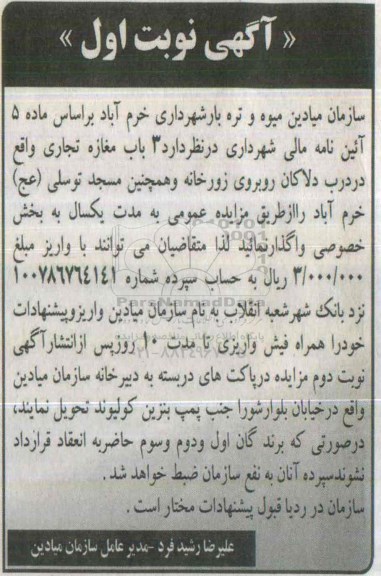 « آگهی نوبت اول »
سازمان میادین میوه و تره بارشهرداری خرم آباد براساس ماده ۵
آئین نامه مالی شهرداری درنظردارد۳ باب مغازه تجاری واقع
دردرب دلاکان روبروی زورخانه وهمچنین مسجد توسلی (عج)
خرم آباد رااازطریق مزایده عمومی به مدت یکسال به بخش
خصوصی واگذارنمائید لذا متقاضیان می توانند با واریز مبلغ
۳/۰۰۰/۰۰۰ ریال به حساب سپرده شماره ۱۰۰۷۸۶۷۶۴۱۴۱
نزد بانک شهرشعبه انقلاب به نام سازمان میادین واریزوپیشنهادات
ParsNamadData
خودرا همراه فیش واریزی تا مدت ۱۰ روزپس ازانتشارآگهی
نوبت دوم مزایده درپاکت های دربسته به دبیرخانه سازمان میادین
واقع درخیابان بلوارشورا جنب پمپ بنزین کولیوند تحویل نمایند،
درصورتی که برند گان اول ودوم وسوم حاضربه انعقاد قرارداد
نشوندسپرده آنان به نفع سازمان ضبط خواهد شد .
سازمان در ردیا قبول پیشنهادات مختار است .
علیرضا رشید فرد -مدیر عامل سازمان میادین